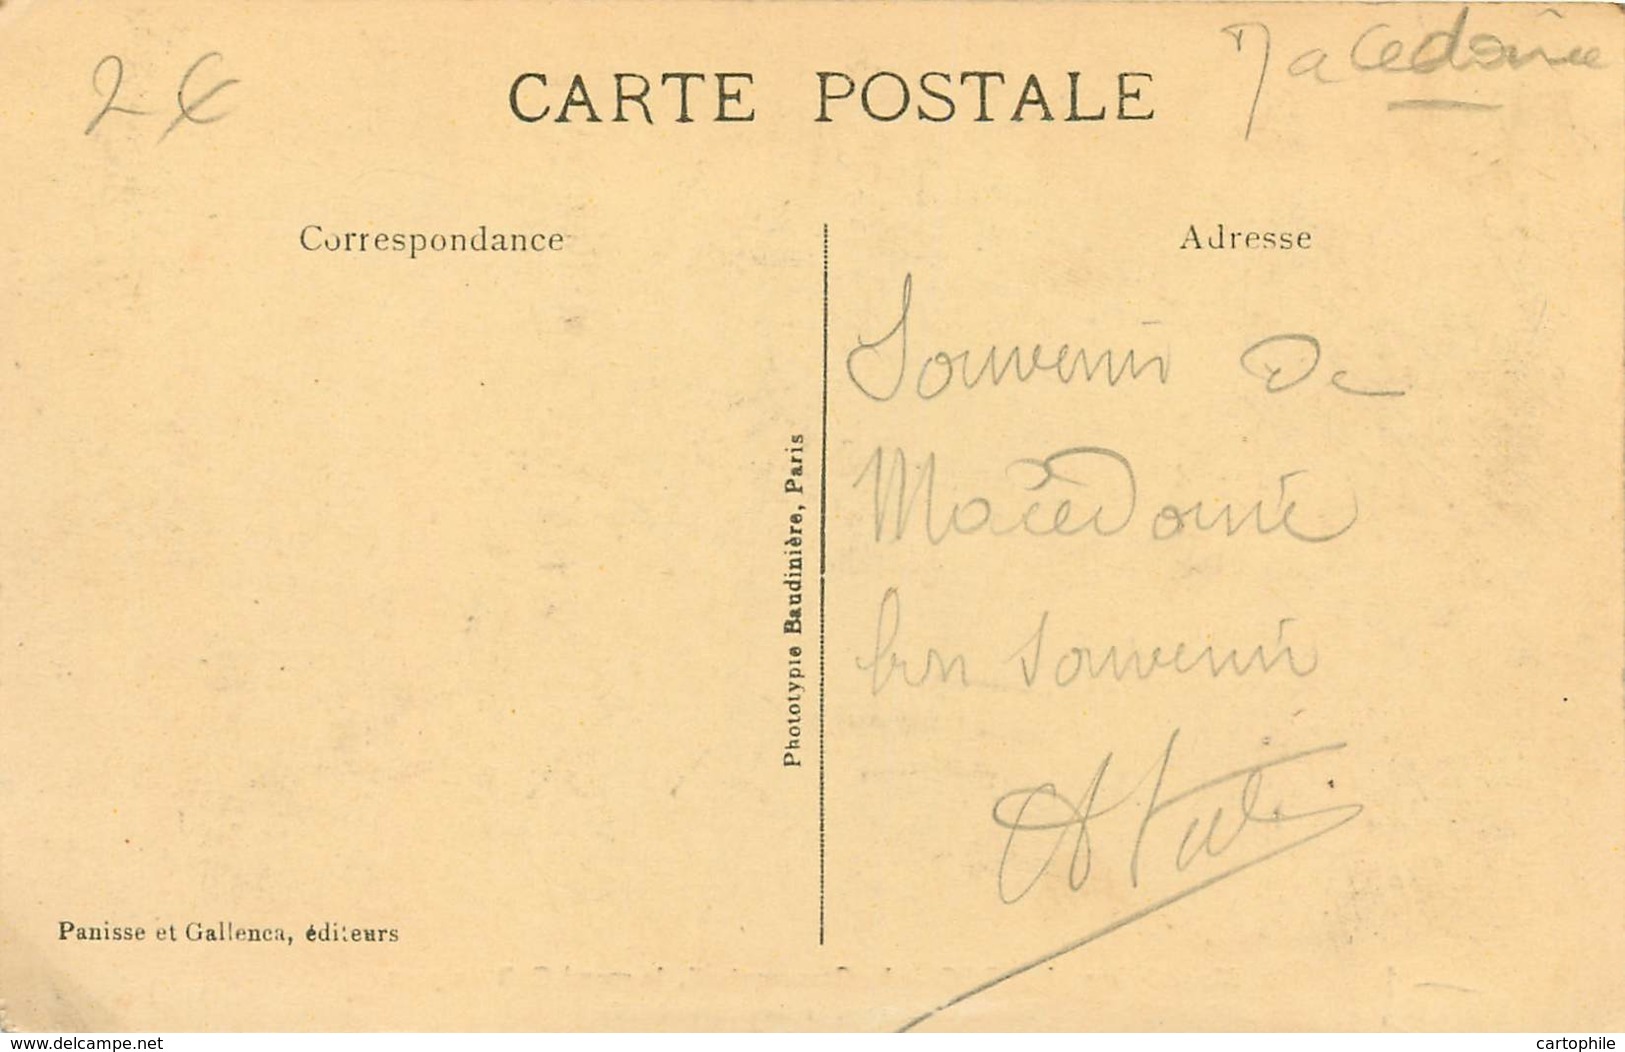 2€
CARTE POSTALE
Macedoine
Correspondance
Adresse
Souvenir de
Macédoine
bon souvenir
Phototypie Baudinière, Paris
Panisse et Gallenca, éditeurs
www.delcampe.net
cartophile